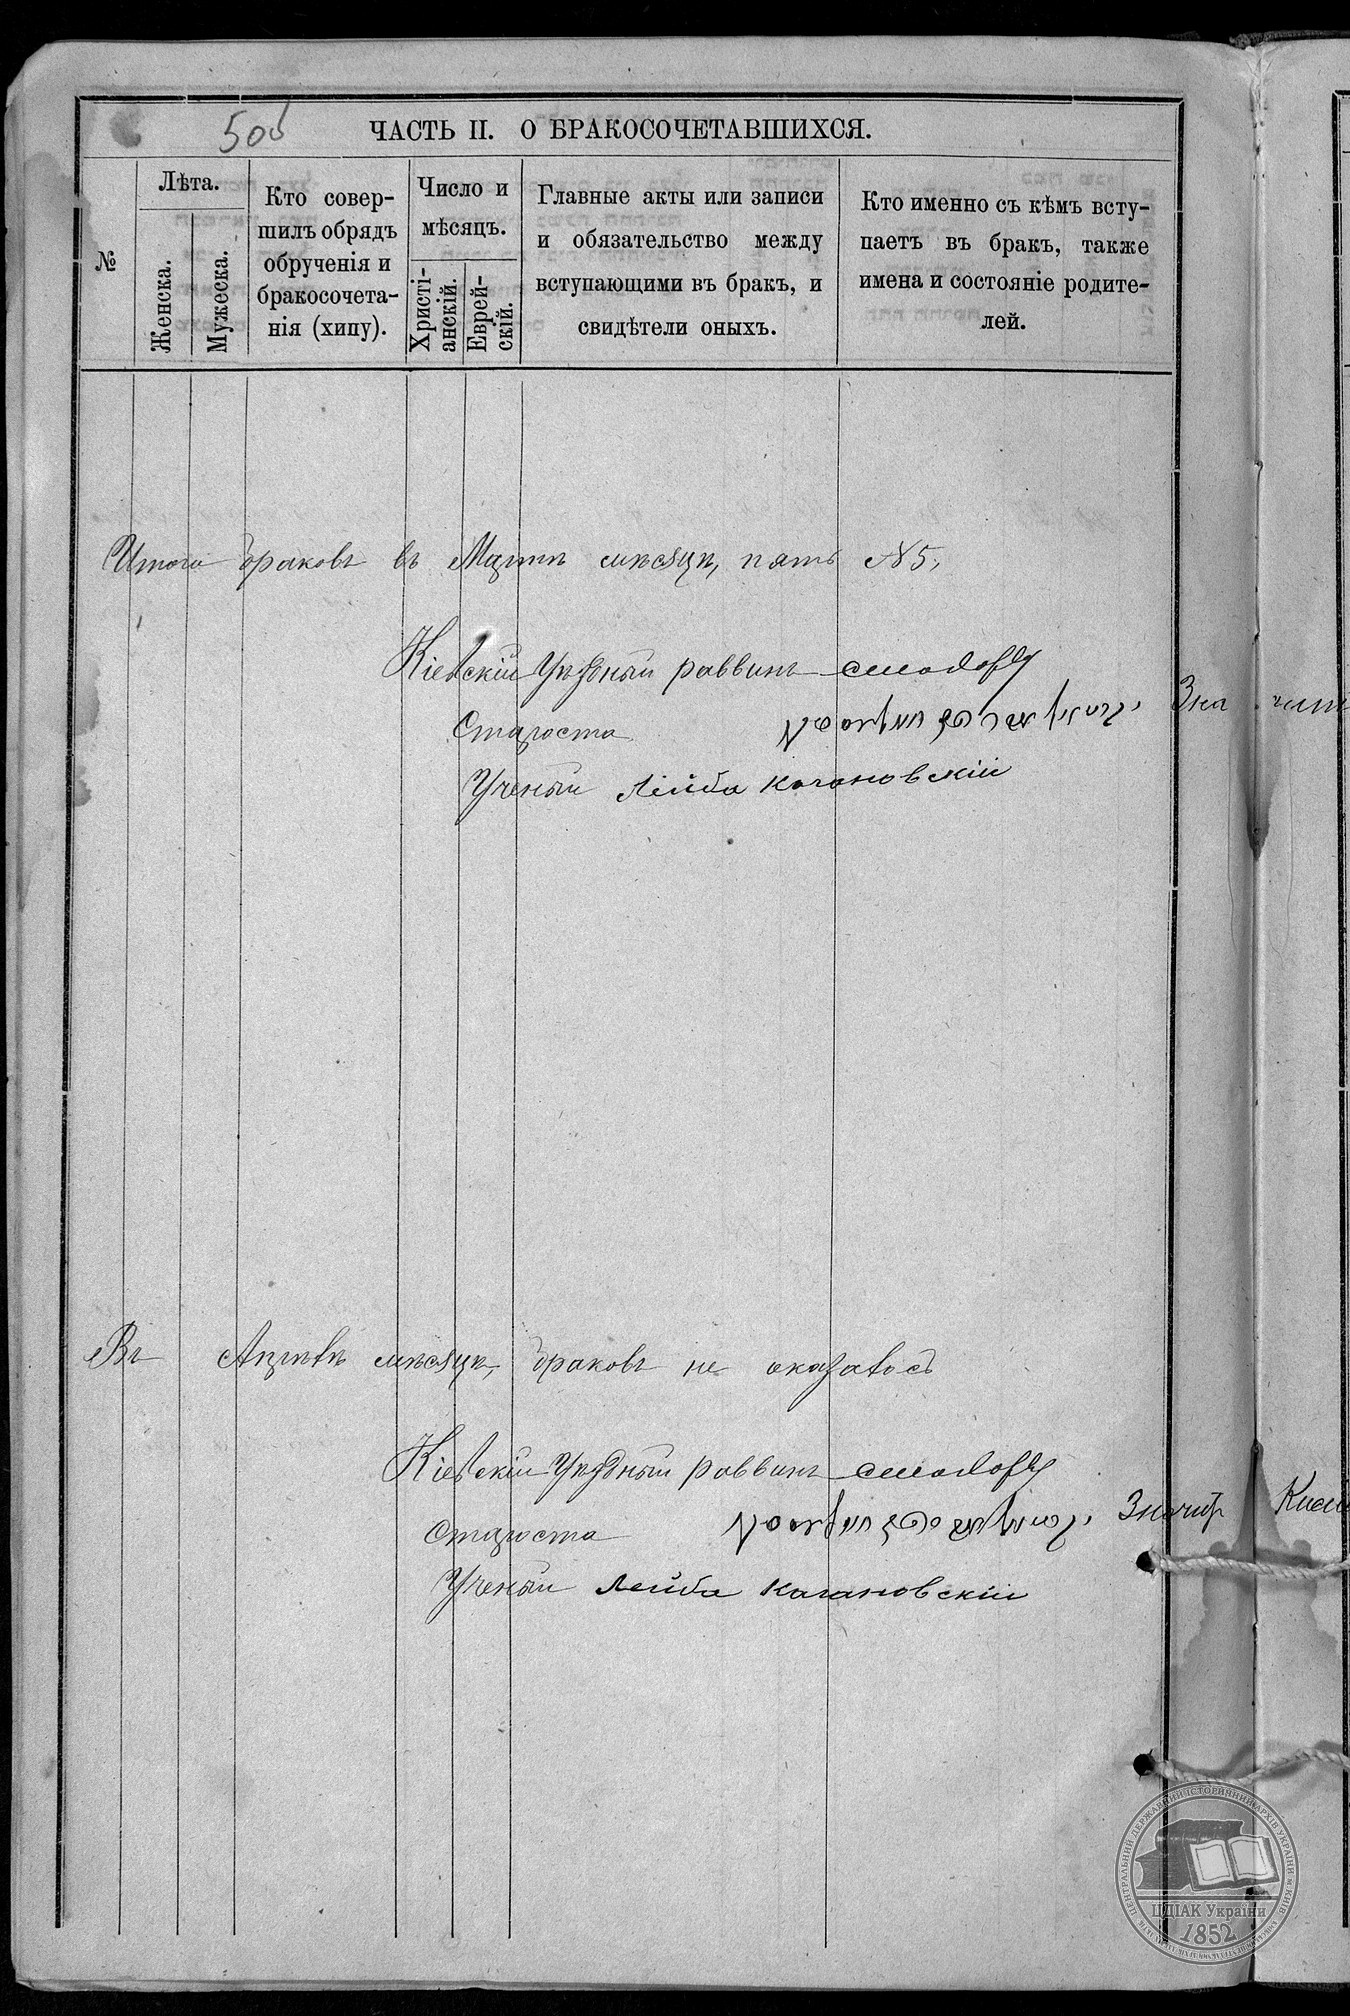 ЧАСТЬ II. О БРАКОСОЧЕТАВШИХСЯ.
№
Лѣта.
Женска.
Мужеска.
Кто совер-
шилъ обрядъ
обрученія и
бракосочета-
нія (хипу).
Число и
мѣсяцъ.
Христі-
анскій.
Еврей-
скій.
Главные акты или записи
и обязательство между
вступающими въ бракъ, и
свидѣтели оныхъ.
Кто именно съ кѣмъ всту-
паетъ въ бракъ, также
имена и состояніе родите-
лей.
Итого браковъ въ Мартѣ мѣсяцѣ, пять №5,
Кіевскій Уѣздный раввинъ
Староста
Ученый Лейба Кагановскій
Въ Апрѣлѣ мѣсяцѣ, браковъ не оказалось
Кіевскій Уѣздный раввинъ
Староста
Ученый Лейба Кагановскій
ЦДІАК України
1852